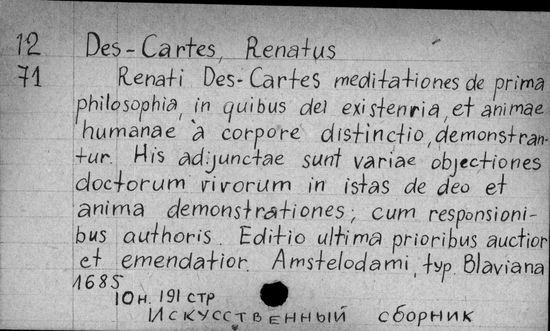 12 Des-Cartes, Renatus
71 Renati Des-Cartes meditationes de prima
philosophia, in quibus dei existenria, et animae
humanae à corpore distinctio, demonstran-
tur. His adjunctae sunt variae objectiones
doctorum virorum in istas de deo et
anima demonstrationes; cum responsioni-
bus authoris. Editio ultima prioribus auctior
et emendatior. Amstelodami, typ. Blaviana
1685
10н. 191 стр
Искусственный сборник